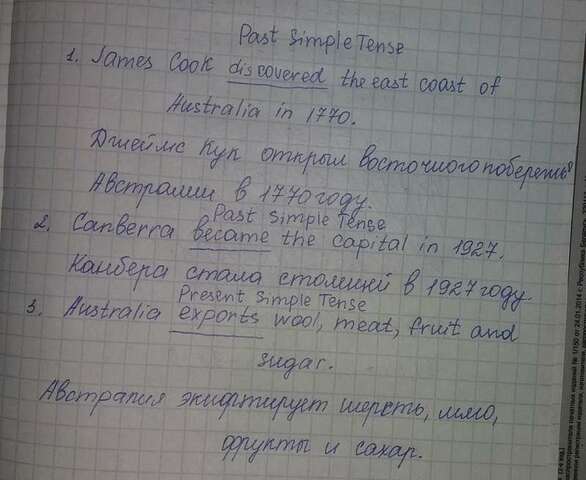 Past Simple Tense
1. James Cook discovered the east coast of
Australia in 1770.
Джеймс Кук открыл восточного побережья
Австралии в 1770 году.
Past Simple Tense
2. Canberra became the capital in 1927.
Канбера стала столицей в 1927 году.
Present Simple Tense
3. Australia exports wool, meat, fruit and
sugar.
Австралия экпортирует шерсть, мясо,
фрукты и сахар.